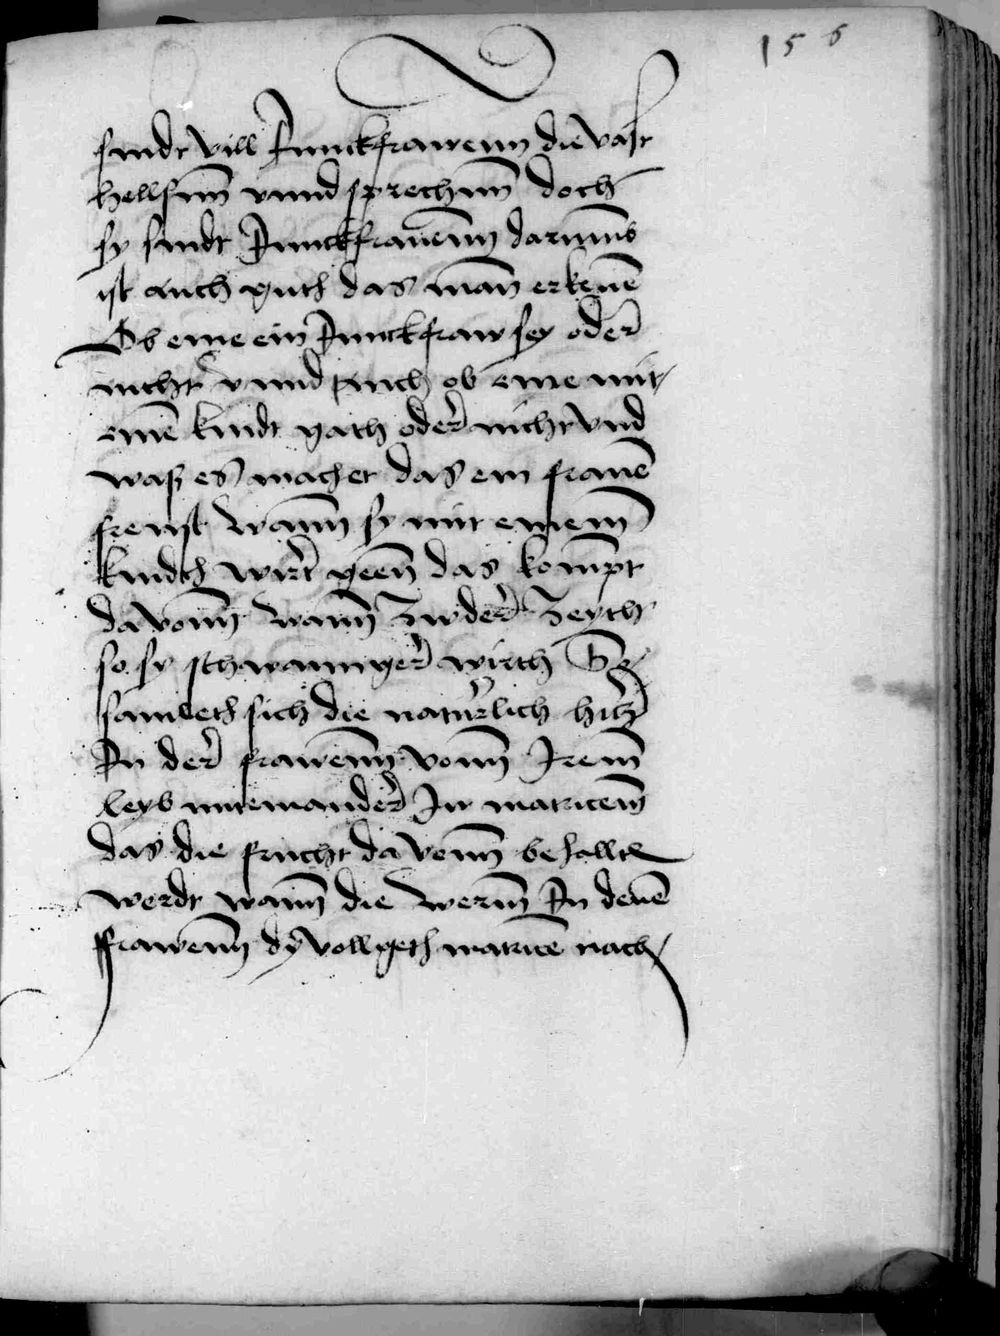 156
sindt vill Junckfrawenn die vast
hellsinn vnnd sprechinn doch
sy sindt Junckfrauenn darumb
ist auch guth das man erkene
Ob eine ein Junckfraw sey oder
nicht vnnd auch ob eine mit
eine kindt gath oder nicht vnd
waß es machet das ein frauen
wann sy mit einem
kindth wirt geen das kompt
davonn wann zw der zeyth
so sy schwannger wirth Be
samleth sich die naturlich hitz
In der frawenn vonn Irem
leyb miteinander In matricem
das die frucht davonn behallten
werdt wann die werm In denen
frawenn dy vollgeth matrice nach